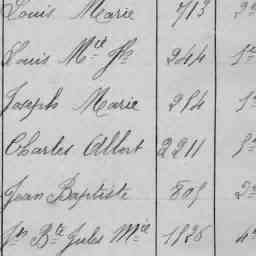 Louis Marie 713 2e
Louis Mie Jh 244 1e
Joseph Marie 284 1e
Charles Albert 2211 5e
Jean Baptiste 805 2e
Jn Bte Jules Mie 1826 4e